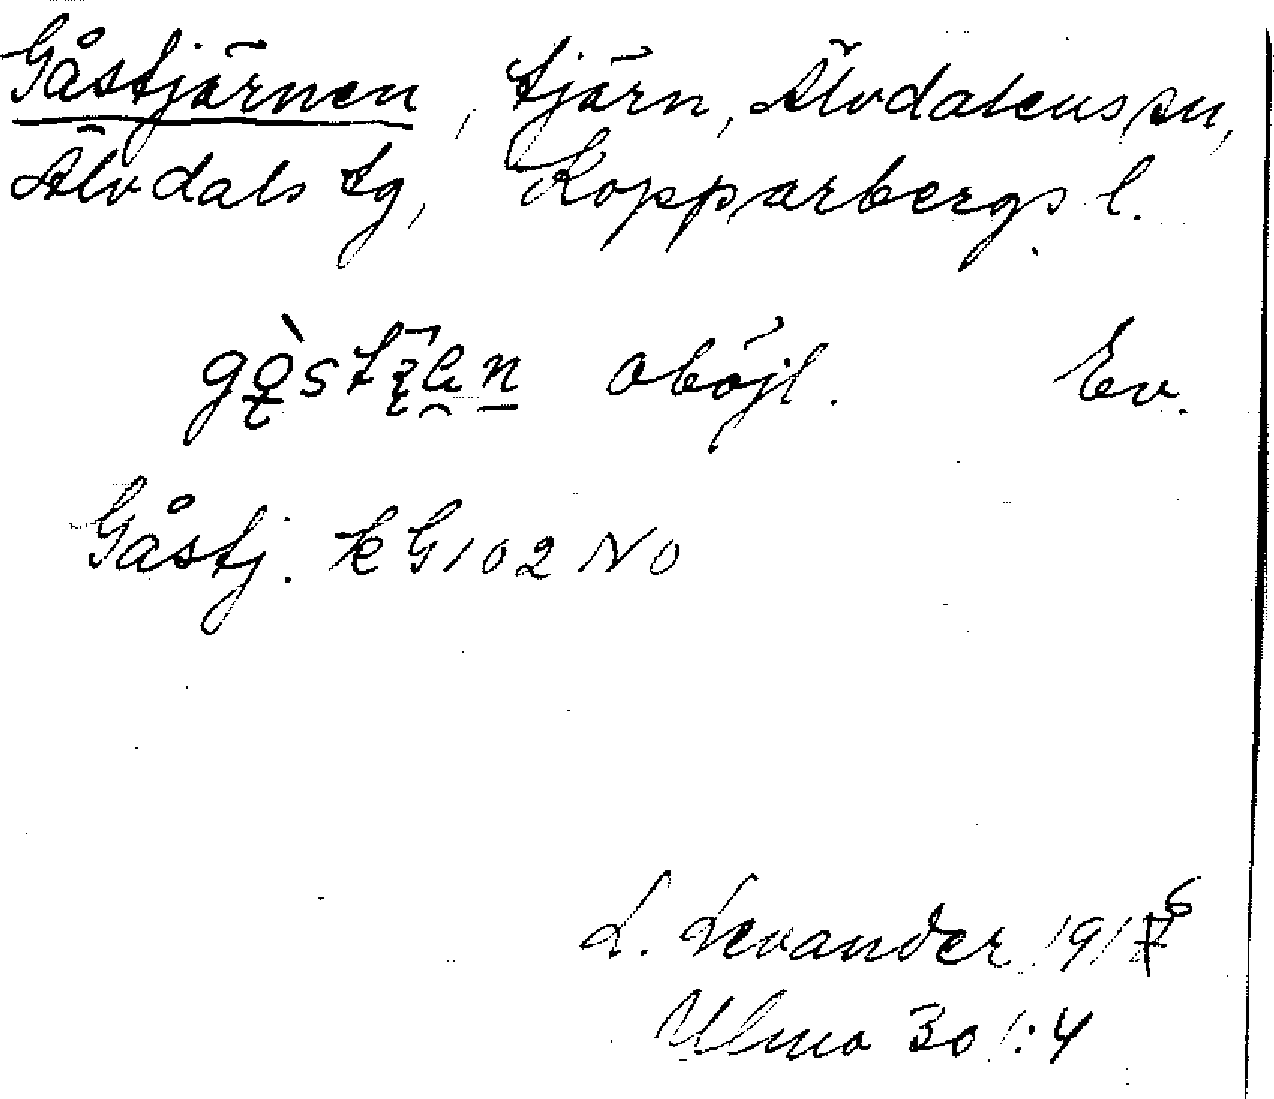 Gåstjärnen, tjärn, Älvdalens sn,
Älvdals tg, Kopparbergs l.
oböjl. Ev.
Gåstj. kG102 NO
L. Levander 1916
Ulma 301:4